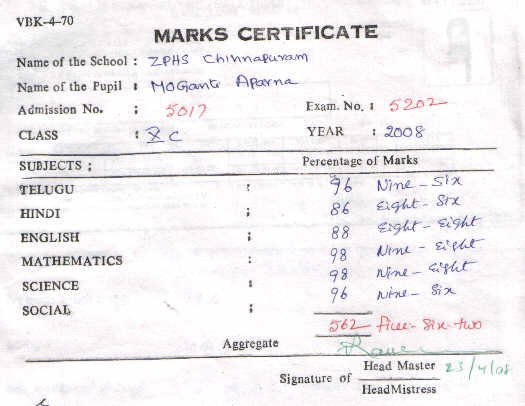 VBK-4-70
MARKS CERTIFICATE
Name of the School : ZPHS Chinnapuram
Name of the Pupil : MoGanti Aparna
Admission No. : 5017 Exam. No. : 5202
CLASS : X C YEAR : 2008
SUBJECTS ; Percentage of Marks
TELUGU : 96 Nine - Six
HINDI ; 86 Eight - Six
ENGLISH ; 88 Eight - Eight
MATHEMATICS : 98 Nine - Eight
SCIENCE ; 98 Nine - Eight
SOCIAL ; 96 Nine - Six
Aggregate 562 five-six-two
Signature of Head Master 23/4/08
HeadMistress